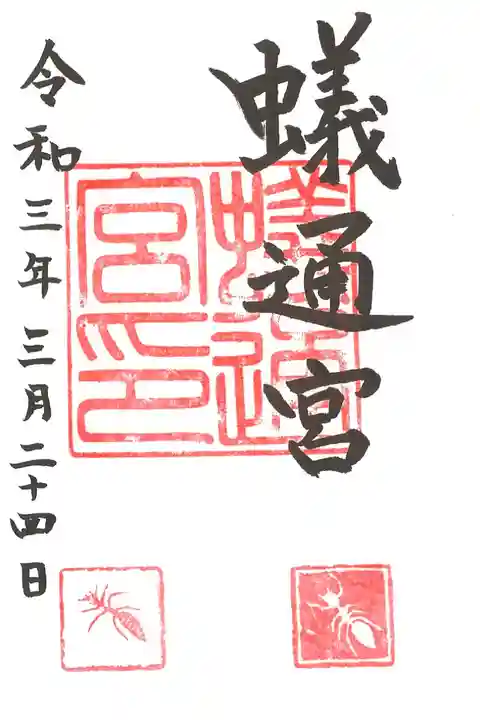 蟻通宮
蟻通
宮印
令和三年三月二十四日